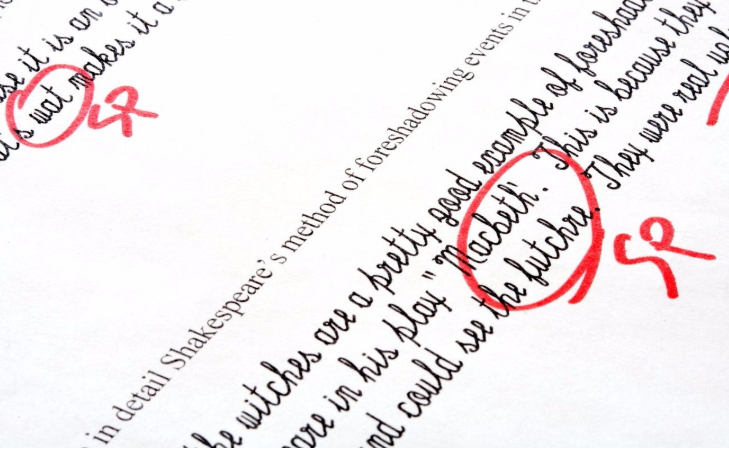 it is an
wat makes it a
SP
in detail Shakespeare's method of foreshadowing events in
witches are a pretty good example of
in his play "Macbeth". This is because they
and could see the futchre. They were real
SP